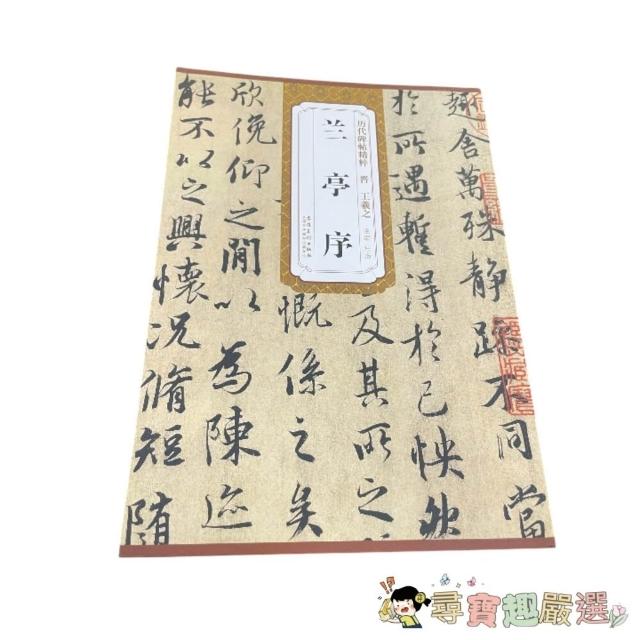 历代碑帖精粹 晋 王羲之
兰亭序
趣舍萬殊静躁不同當
於所遇蹔得於己怏然
及其所之
慨係之矣
欣俛仰之閒以爲陳迹
能不以之興懷况脩短随
尋寶趣嚴選